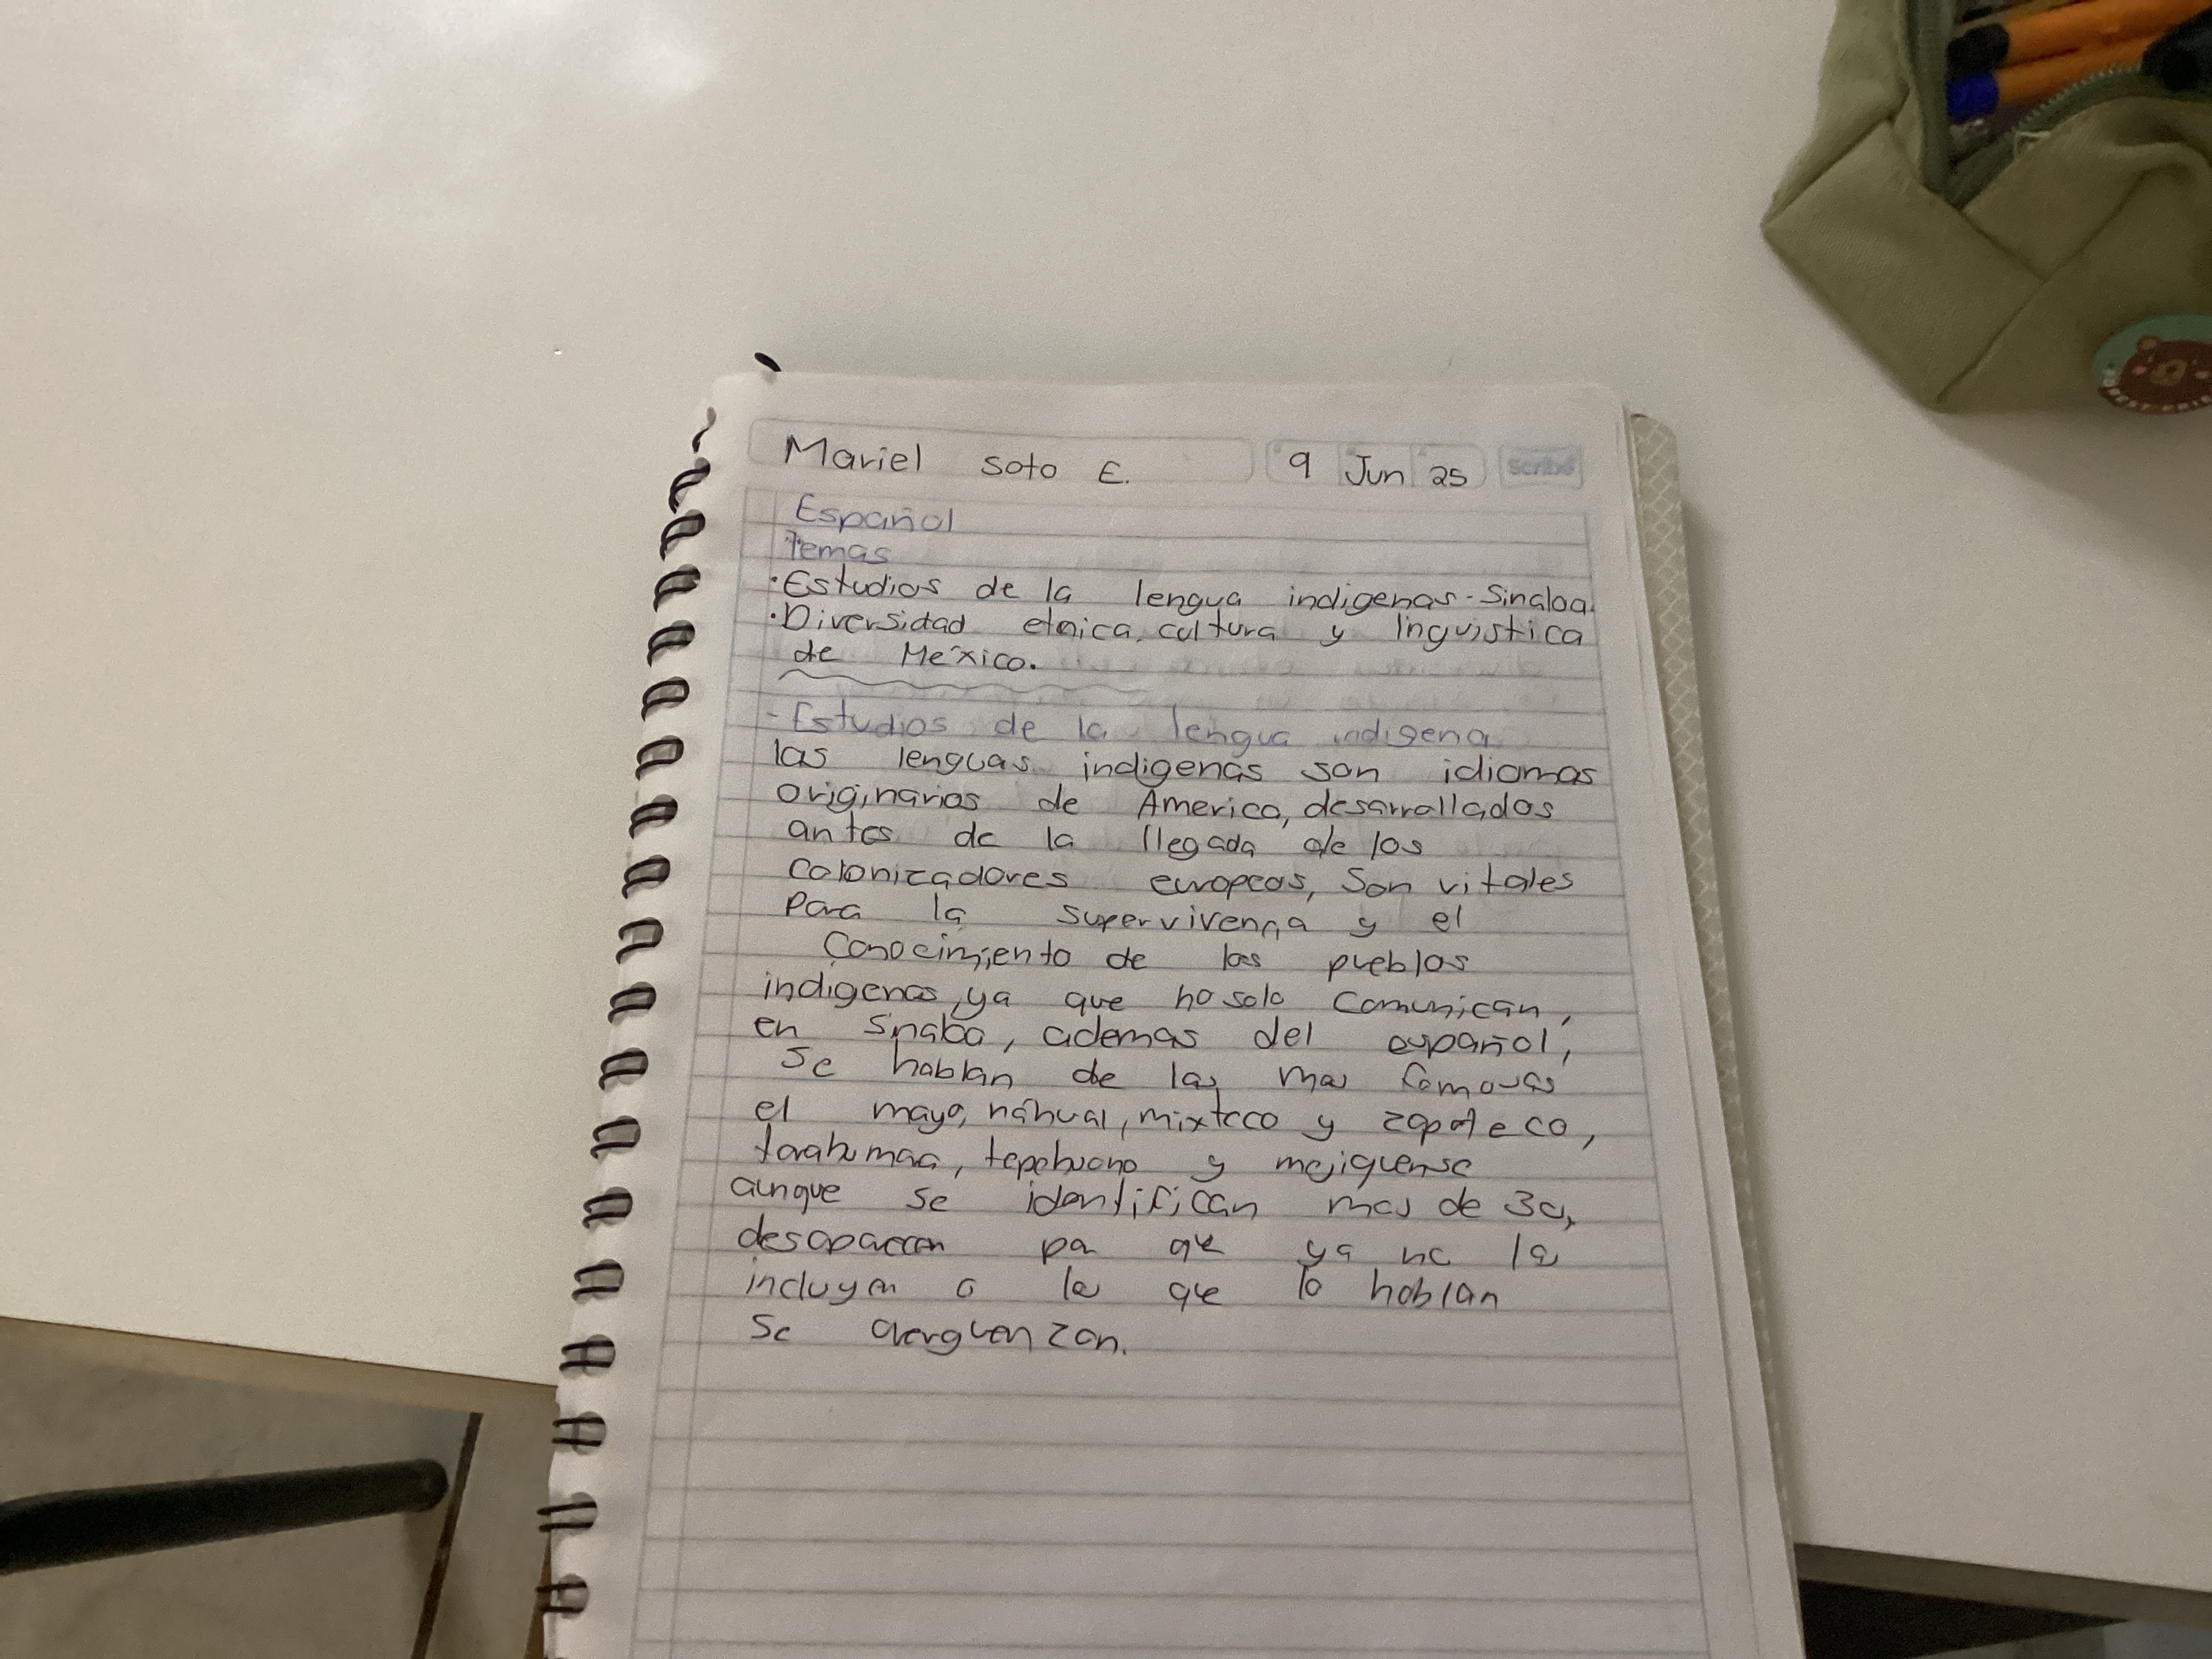 Mariel Soto E. 9 Jun 25 Scribe
Español
Temas
·Estudios de la lengua indigenas - Sinaloa.
·Diversidad etnica, cultura y linguistica
de México.
- Estudios de la lengua indigena
las lenguas indigenas son idiomas
originarios de America, desarrollados
antes de la llegada de los
colonizadores europeos, Son vitales
Para la
y el
Conocimiento de los pueblos
indigenas, ya que no solo comunican,
en Sinaloa, ademas del español,
Se hablan de las mas famosas
el mayo, náhual, mixteco y zapoteco,
y
aunque se identifican mas de 30,
desaparecen por que ya no la
incluyen o los que lo hablan
Se averguenzan.